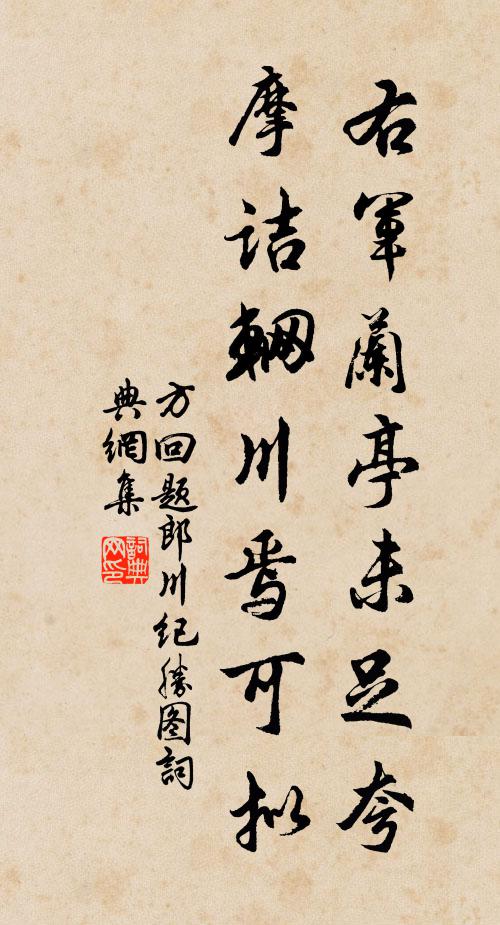 右軍蘭亭未足夸
摩詰輞川焉可拟
方回题郎川纪勝图詞
典網集
詞典
网印